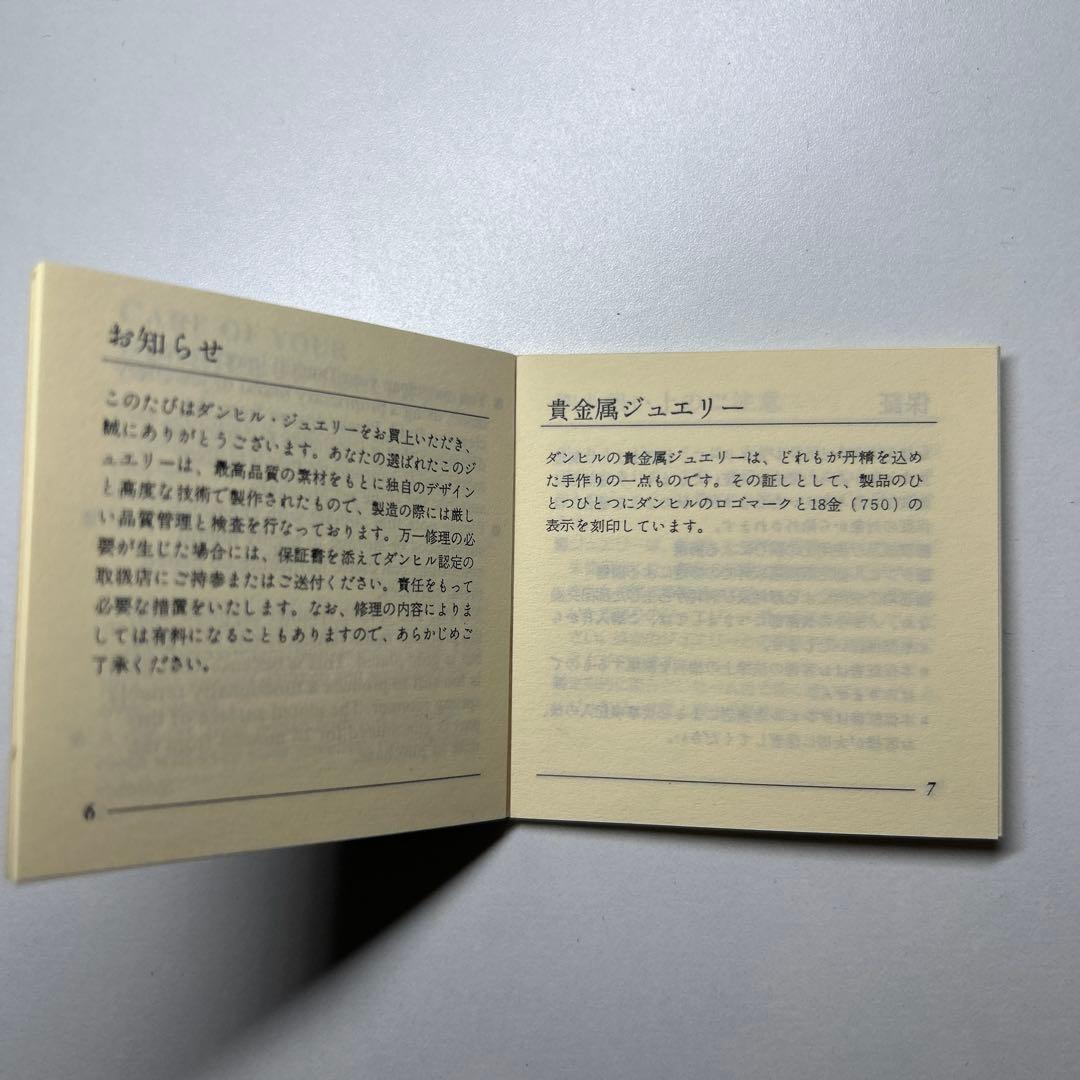 お知らせ
このたびはダンヒル・ジュエリーをお買上いただき、
誠にありがとうございます。あなたの選ばれたこのジ
ュエリーは、最高品質の素材をもとに独自のデザイン
と高度な技術で製作されたもので、製造の際には厳し
い品質管理と検査を行なっております。万一修理の必
要が生じた場合には、保証書を添えてダンヒル認定の
取扱店にご持参またはご送付ください。責任をもって
必要な措置をいたします。なお、修理の内容によりま
しては有料になることもありますので、あらかじめご
了承ください。
6
貴金属ジュエリー
ダンヒルの貴金属ジュエリーは、どれもが丹精を込め
た手作りの一点ものです。その証しとして、製品のひ
とつひとつにダンヒルのロゴマークと18金（750）の
表示を刻印しています。
7